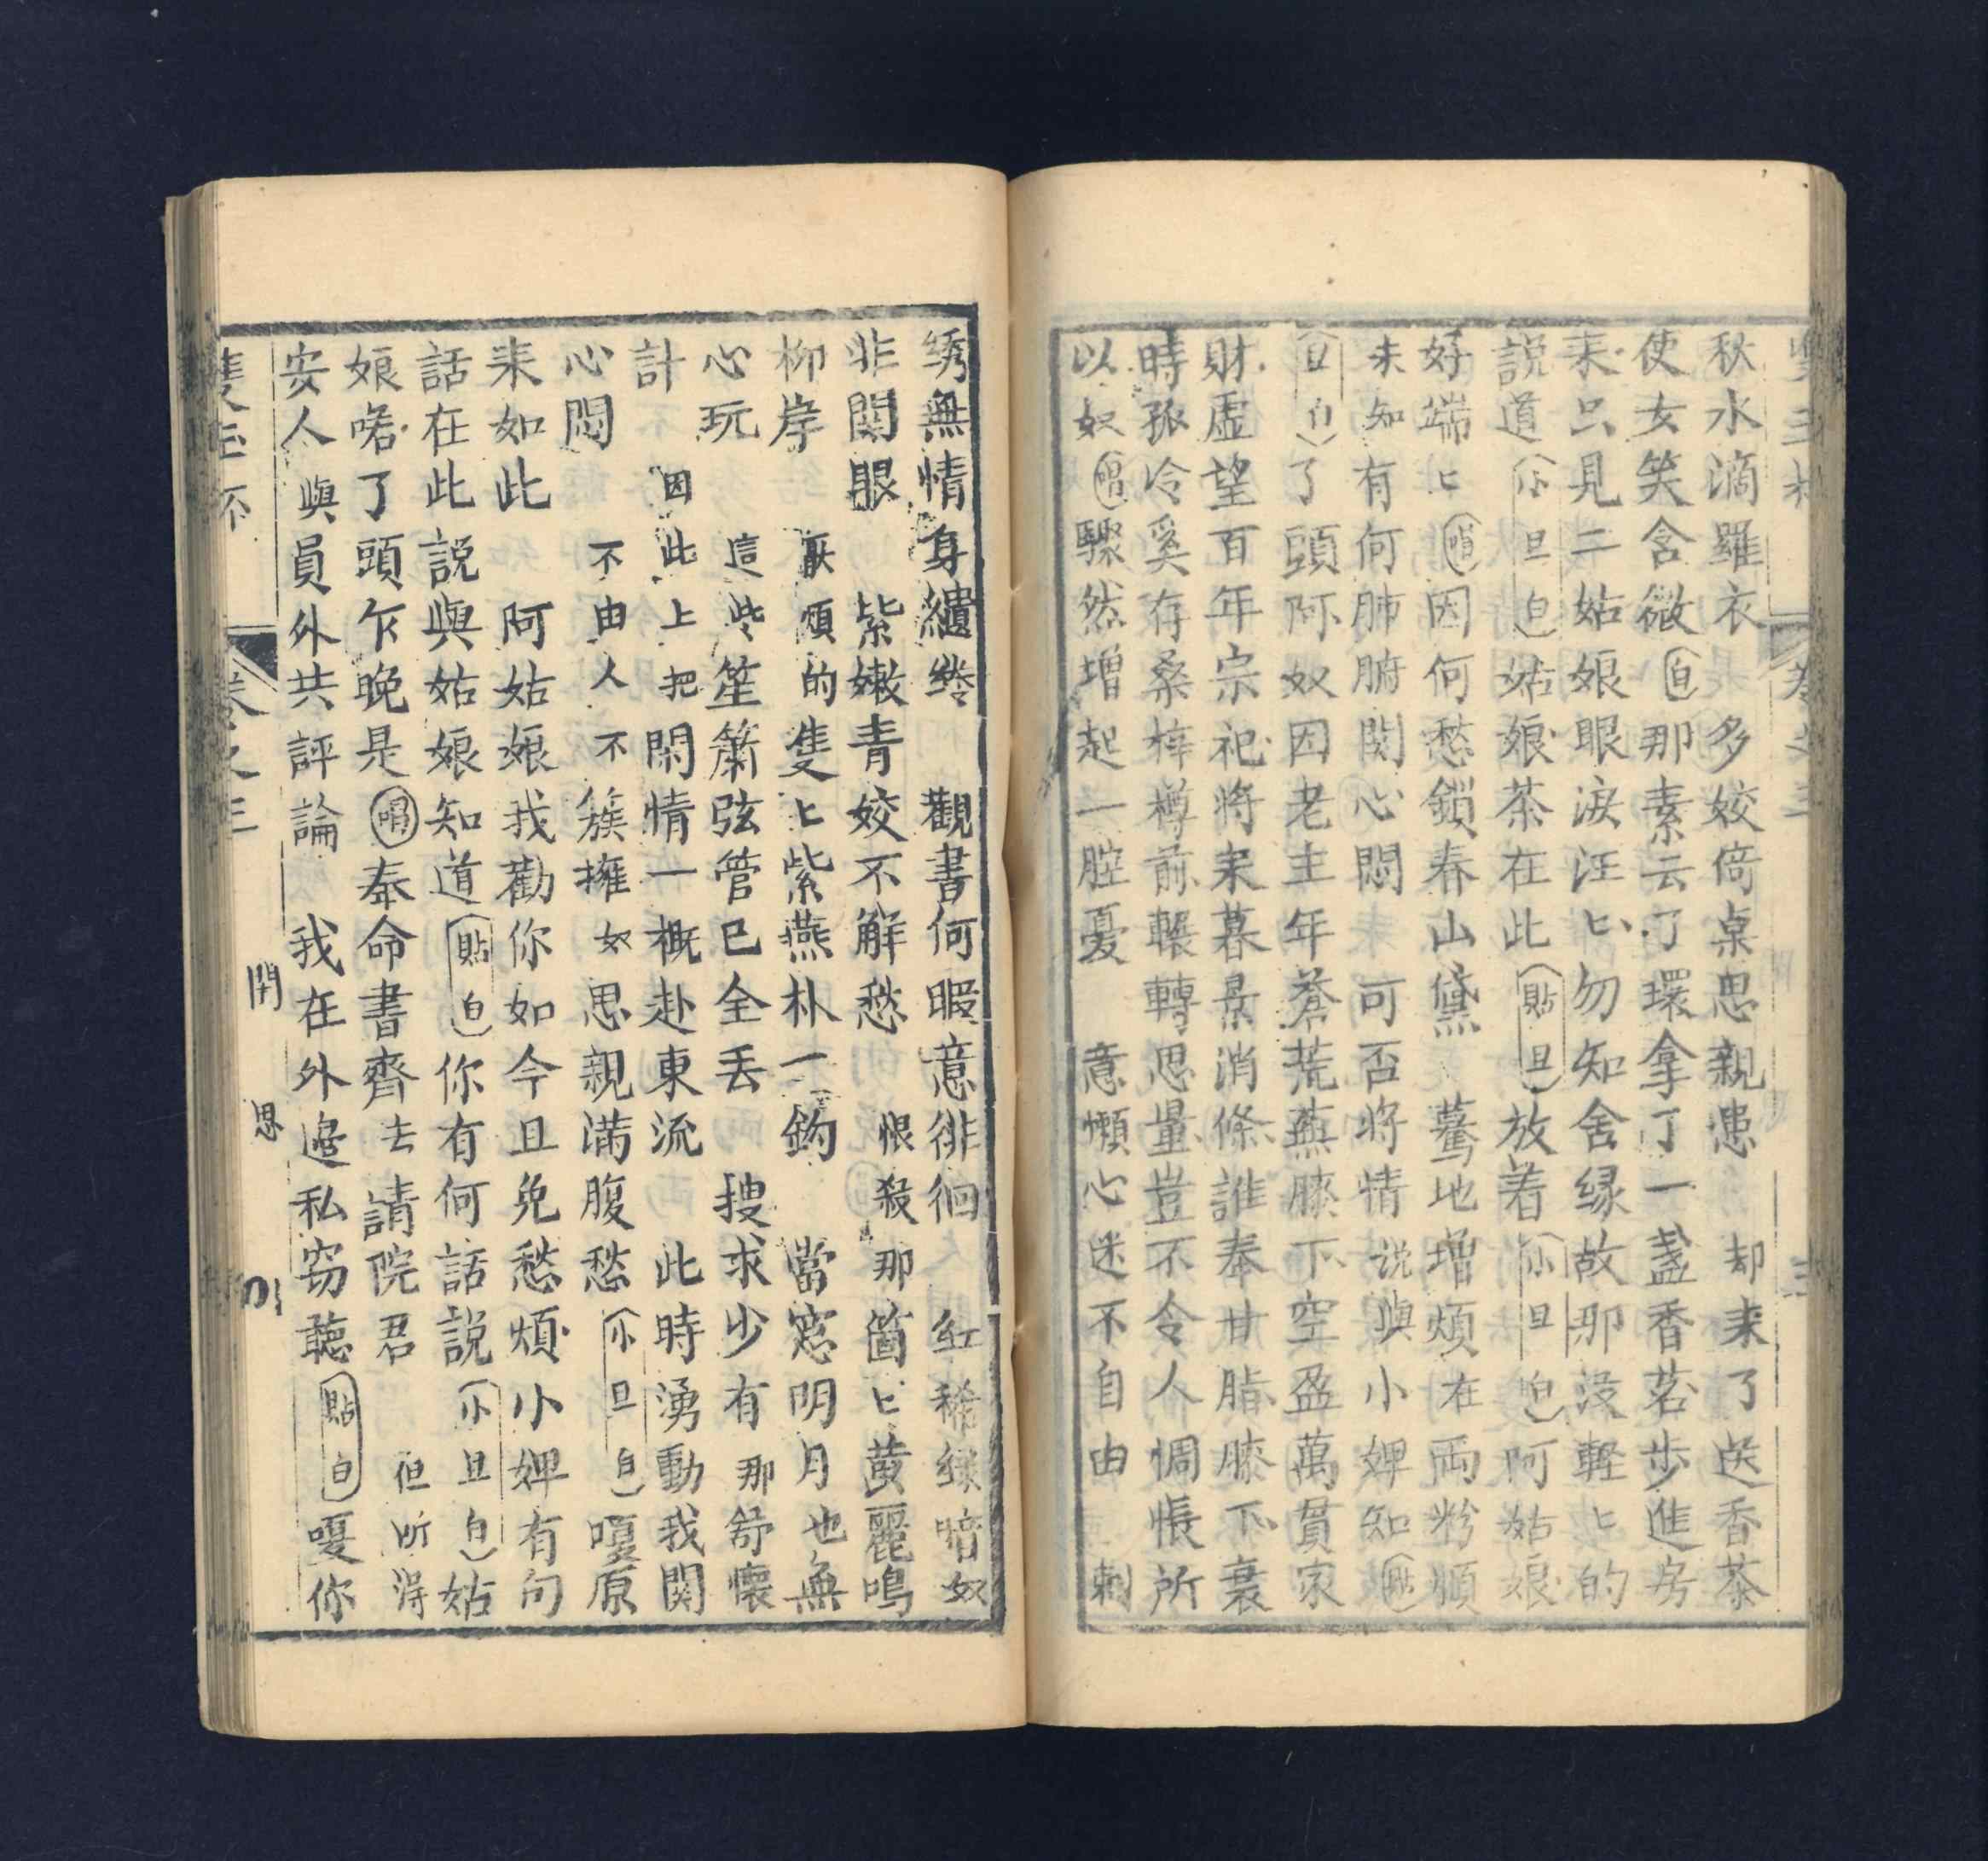 秋水滴羅衣　多姣倚桌思親患　却来了送香茶
使女笑含微(白)那素云了環拿了一盞香茗步進房
来只見二姑娘眼淚汪匕勿知舍緣故那没輕匕的
説道(小旦白)姑娘茶在此(貼旦)放着(小旦白)阿姑娘
好端匕(唱)因何愁鎖春山黛　驀地增煩在両粉頰
未知有何肺腑関心悶　可否將情说與小婢知(貼
旦白)了頭阿奴因老主年蒼荒燕膝下空盈萬貫家
財虚望百年宗祀將来暮景消條誰奉甘脂膝下衰
時孤冷奚存桑梓樽前輾轉思量豈不令人惆悵所
以奴(唱)驟然增起一腔憂　意懶心迷不自由　刺
綉無情身繾綣　觀書何暇意徘徊　紅稀緑暗奴
非関眼　紫嫩青姣不解愁　恨殺那箇匕黄麗鳴
柳岸　厭煩的隻匕紫燕朴一鈎　當窓明月也無
心玩　這些笙簫弦管已全丢　搜求少有那舒懷
計　因此上把閑情一概赴東流　此時湧動我関
心悶　不由人不簇擁奴思親滿腹愁(小旦白)嗄原
来如此　阿姑娘我勸你如今且免愁煩小婢有句
話在此説與姑娘知道(貼白)你有何話説(小旦白)姑
娘喏了頭乍晚是(唱)奉命書齊去請院君　但听得
安人與員外共評論　我在外邉私窃聼(貼白)嗄你
卷之三　閙　思